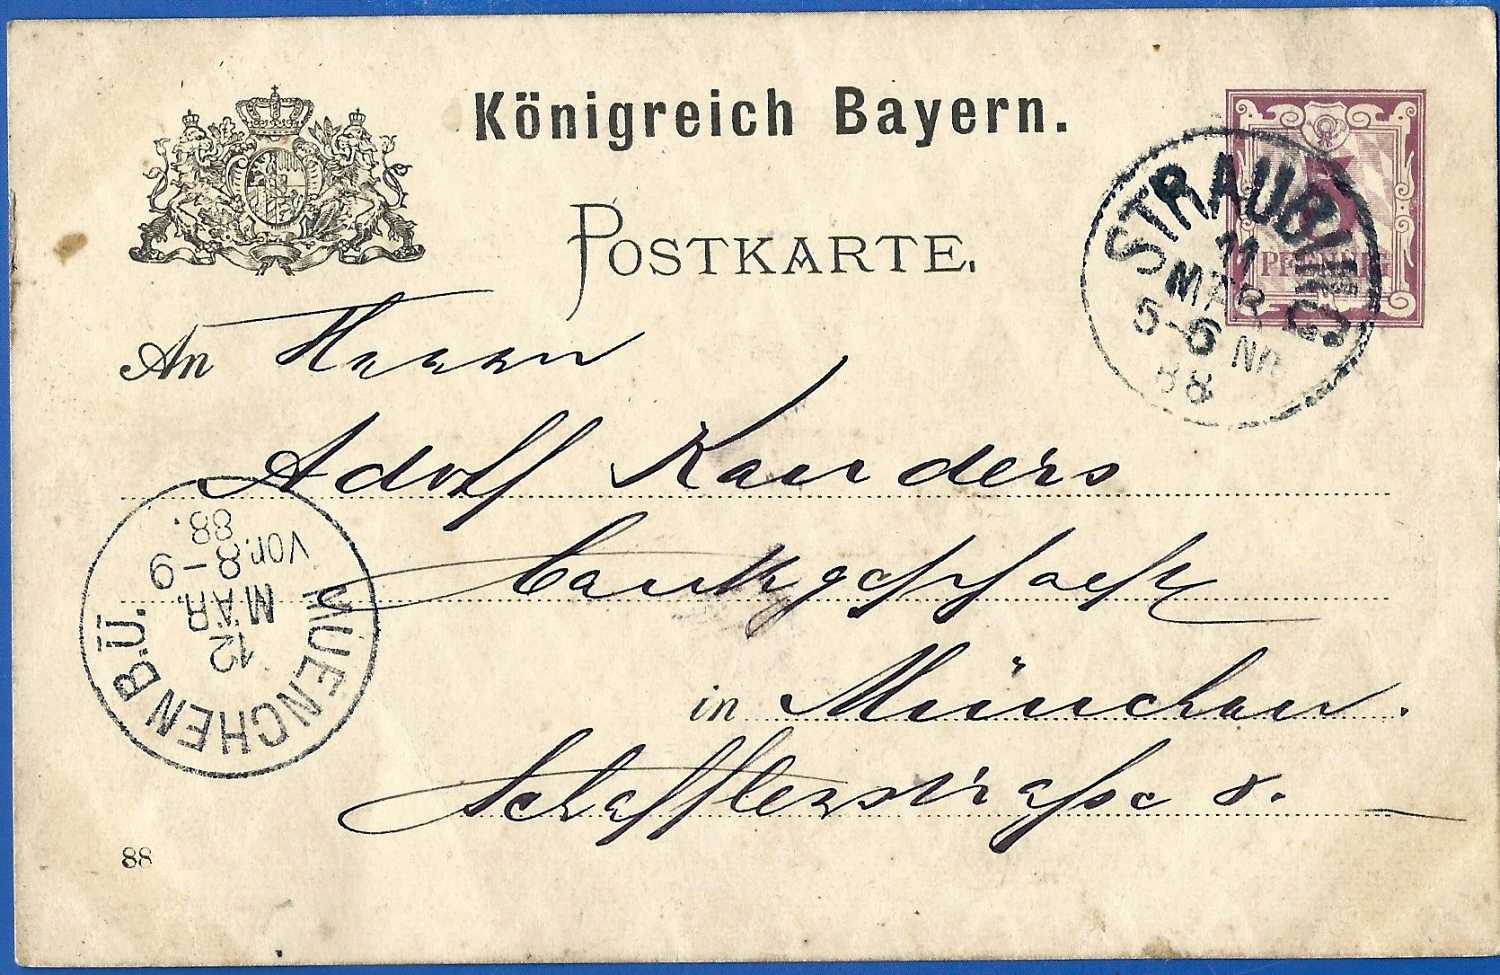 Königreich Bayern.
POSTKARTE.
5
PFENNIG
STRAUBING
11
MÄR
5-6 NM
88
An Herrn
Adolf Kanders
Bankgeschäft
in München.
Schäfflerstraße 8.
MUENCHEN B.Ü.
12
MÄR.
VOR. 8-9
88.
88